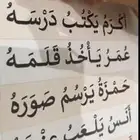 أَكْرَمُ يَكْتُبُ دَرْسَهُ
عُمَرُ يَأْخُذُ قَلَمَهُ
حَمْزَةُ يَرْسُمُ صُوَرَهُ
أَنَسُ يَلْعَبُ